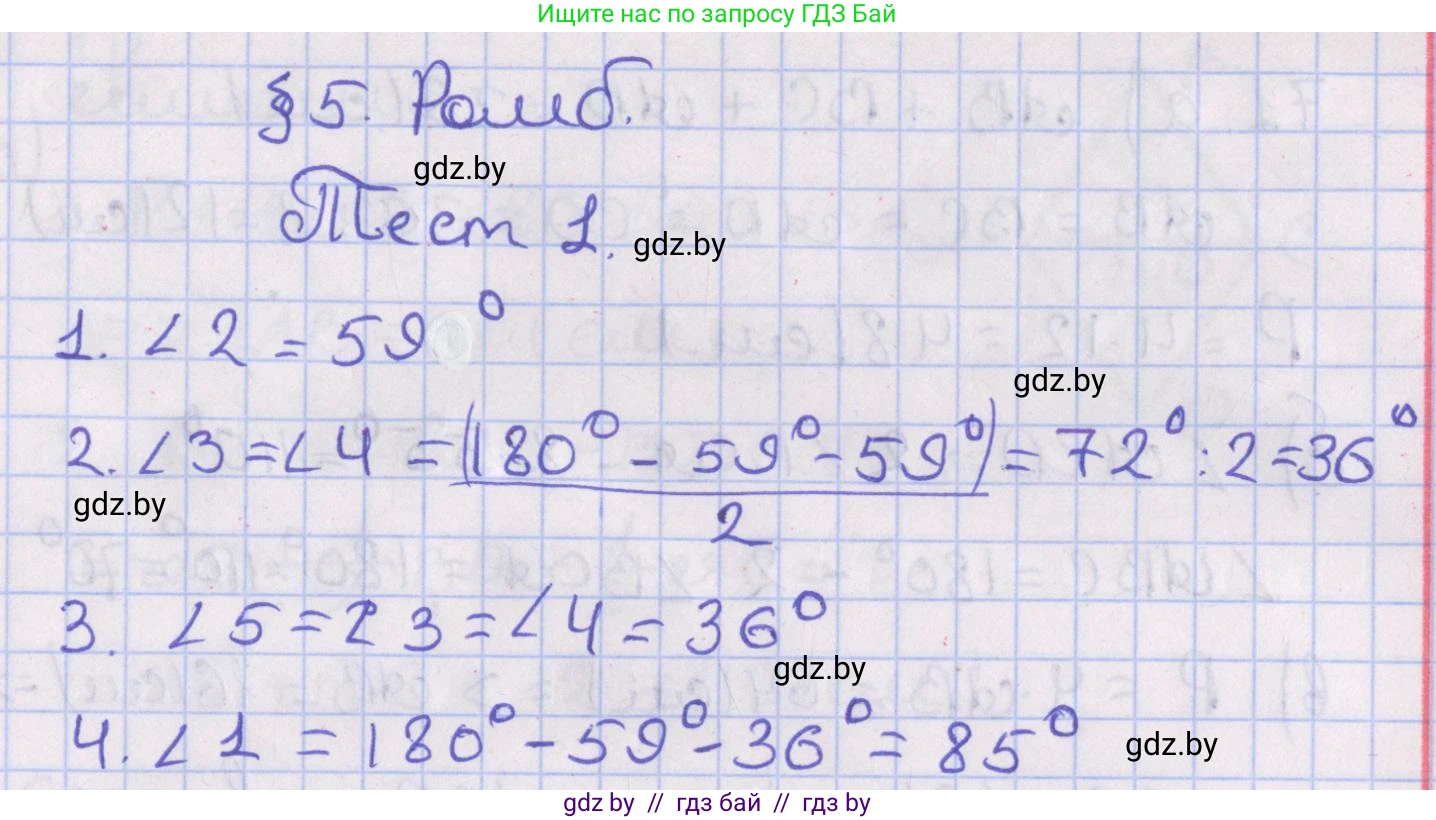 Ищите нас по запросу ГДЗ Бай
§ 5. Ромб.
gdz.by
Тест 1.
gdz.by
1. ∠2 = 59°
gdz.by
2. ∠3 = ∠4 = (180° - 59° - 59°) = 72° : 2 = 36°
2
gdz.by
3. ∠5 = ∠3 = ∠4 = 36°
gdz.by
4. ∠1 = 180° - 59° - 36° = 85°
gdz.by
gdz by // гдз бай // гдз by